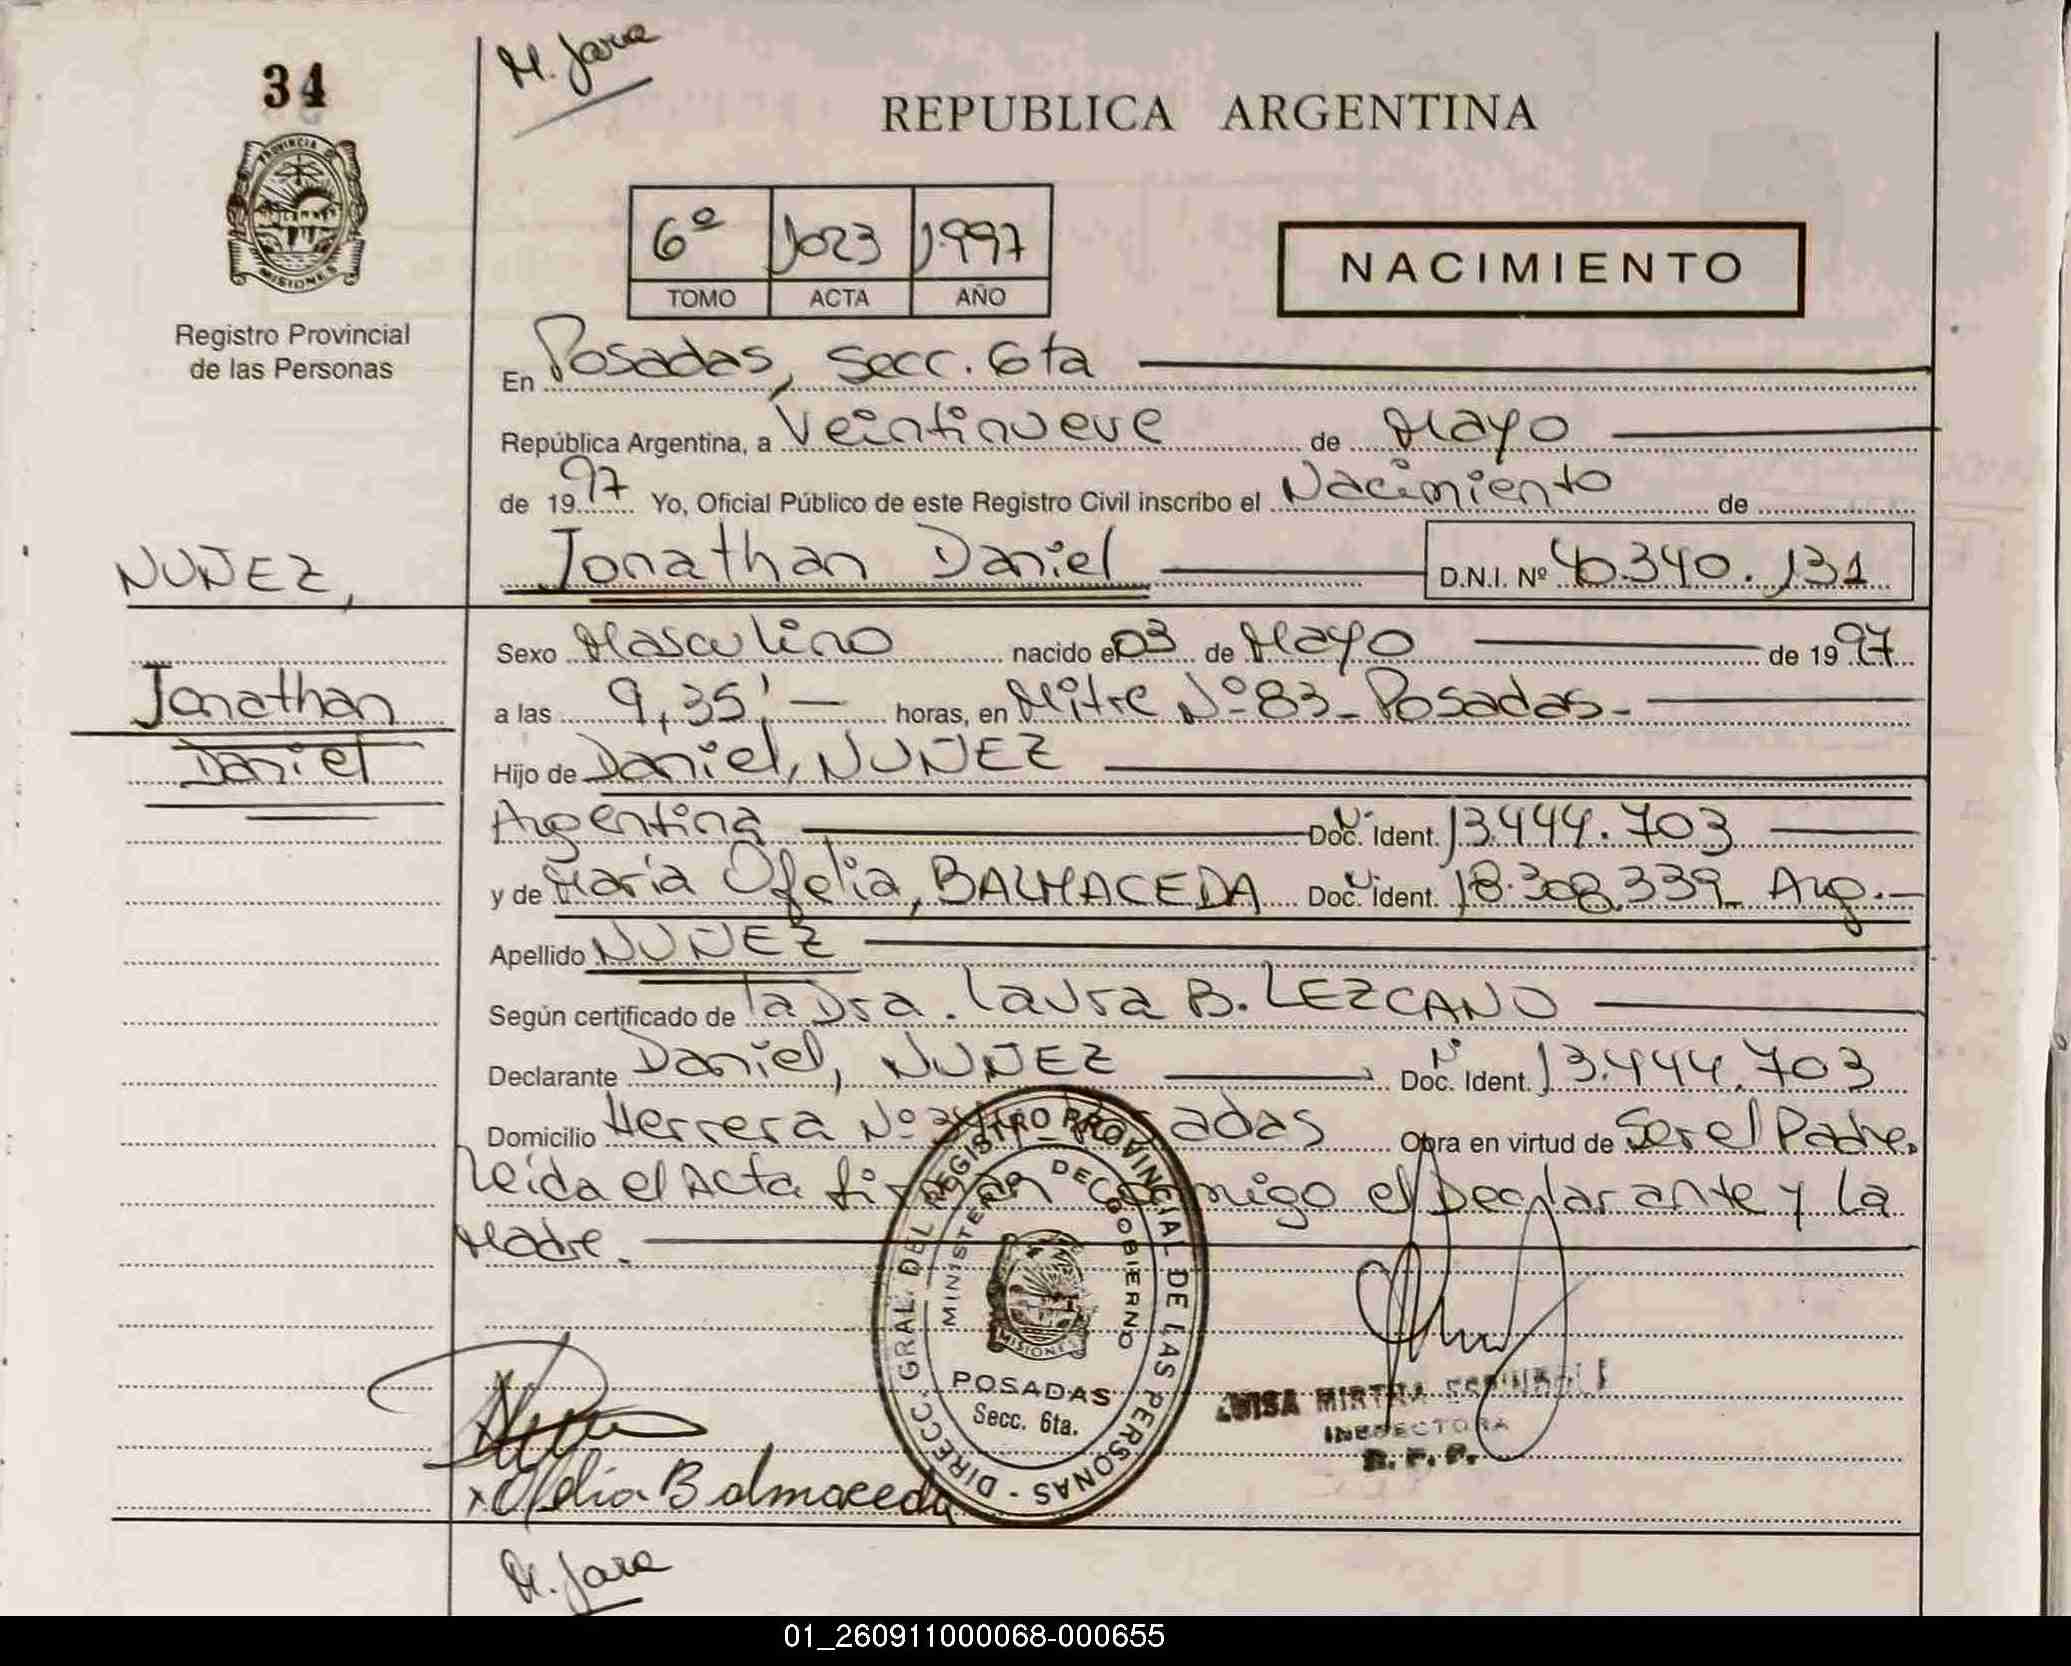 34
H. Jara
REPUBLICA ARGENTINA
PROVINCIA D
MISIONES
Registro Provincial
de las Personas
6º 1023 1.997
TOMO ACTA AÑO
NACIMIENTO
En Posadas, Secc. 6ta
República Argentina, a Veintinueve de Mayo
de 1997 Yo, Oficial Público de este Registro Civil inscribo el Nacimiento de
NUÑEZ, Jonathan Daniel D.N.I. Nº 40.340.131
Sexo Masculino nacido el 03 de Mayo de 1997
Jonathan a las 9,35'- horas, en Mitre Nº 83- Posadas-
Daniel Hijo de Daniel, NUÑEZ
Argentina Doc. Ident. Nº 13.444.703
y de María Ofelia, BALMACEDA Doc. Ident. Nº 18.308.339- Arg.-
Apellido NUÑEZ
Según certificado de la Dra. Laura B. LEZCANO
Declarante Daniel, NUÑEZ Doc. Ident. Nº 13.444.703
Domicilio Herrera Nº Obra en virtud de Ser el Padre.
Leida el Acta conmigo el Declarante y la
Madre.
DIRECC. GRAL. DEL REGISTRO PROVINCIAL DE LAS PERSONAS -
MINISTERIO DE GOBIERNO
MISIONES
POSADAS
Secc. 6ta.
LUISA MIRTHA
INSPECTORA
R. P. P.
x Ofelia Balmaceda
H. Jara
01_260911000068-000655